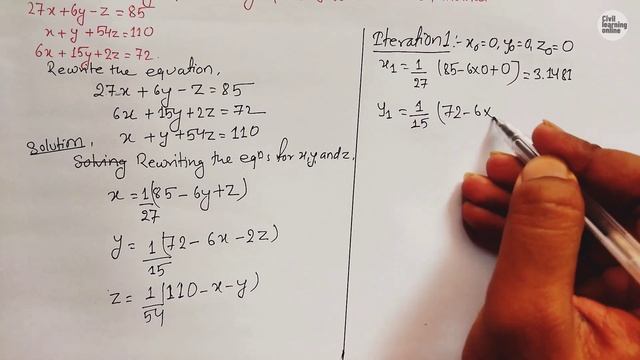 27x+6y-z=85
x+y+54z=110
6x+15y+2z=72
Rewrite the equation,
27x+6y-z=85
6x+15y+2z=72
x+y+54z=110
Solving Rewriting the eqns for x,y, and z.
x=1/27(85-6y+z)
y=1/15(72-6x-2z)
z=1/54(110-x-y)
Iteration1:- x0=0, y0=0, z0=0
x1=1/27(85-6x0+0)=3.1481
y1=1/15(72-6x
Civil
learning
online